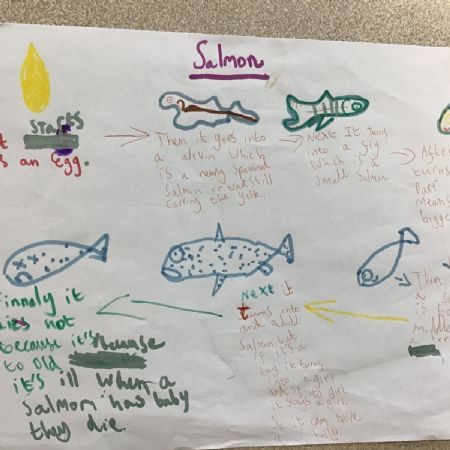 Salmon
It starts
as an egg.
Then it goes into
a alevin which
is a newly spawned
Salmon or trout still
carring the yolk.
Next It turns
into a fry
which is a
small salmon
After
turns
Parr
Means
bigge
Then
a s
is bo
Middle
a tre
Next it
turns into
and adult
Salmon but
if it's a
boy it turns
into a girl
and if its girl
it stays a girl.
So it can have
baby.
Finnaly it
dies not
because it's because
to old
it's ill when a
Salmon has baby
they die.